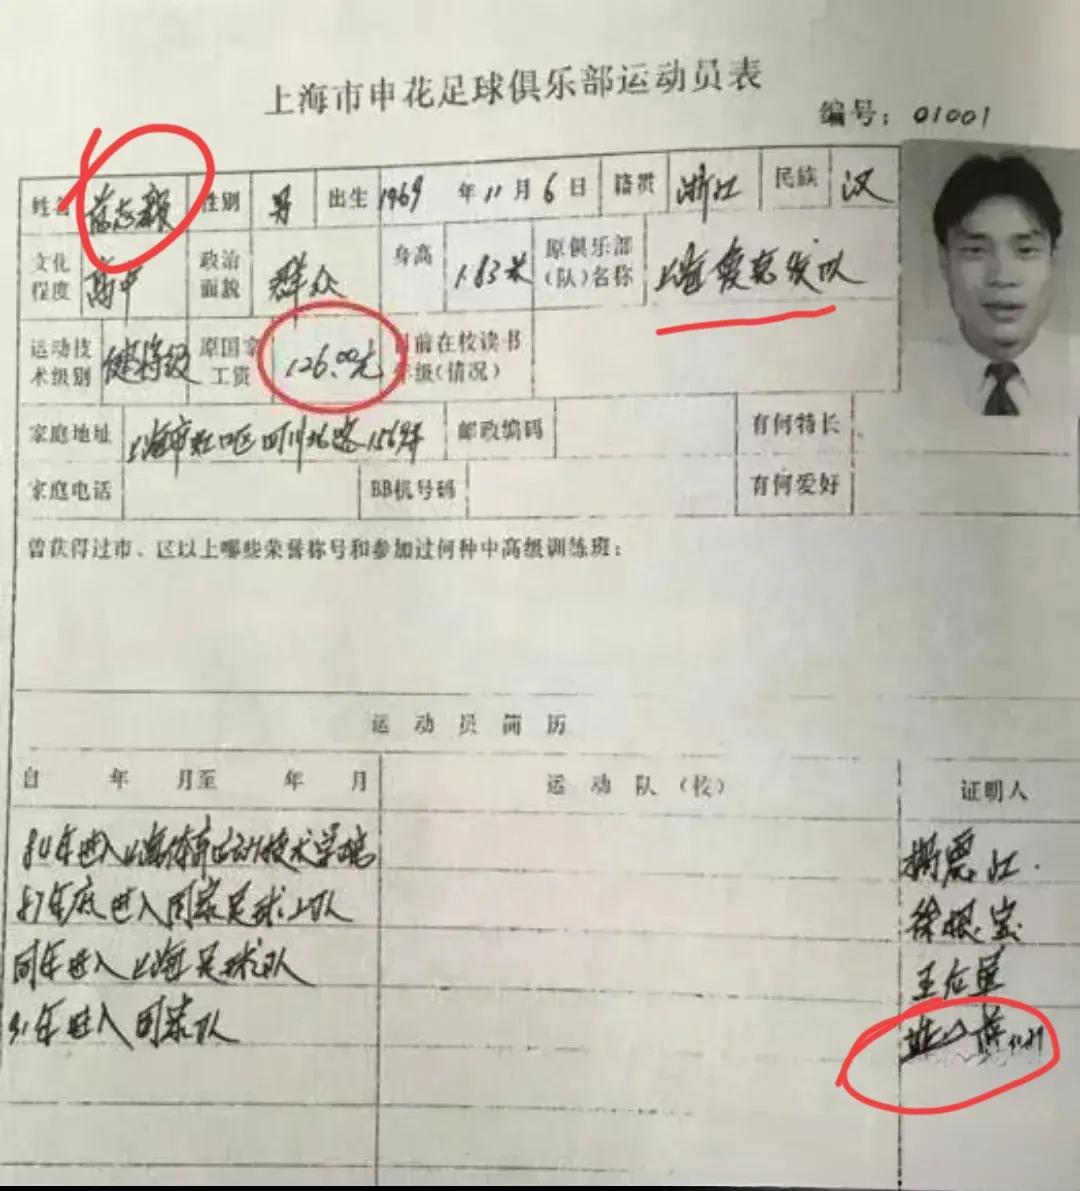 上海市申花足球俱乐部运动员表
编号：01001
姓名 范志毅 性别 男 出生 1969 年 11 月 6 日 籍贯 浙江 民族 汉
文化程度 高中 政治面貌 群众 身高 1.83米 原俱乐部(队)名称 上海
运动技术级别 健将级 原国家工资 126.00元 目前在校读书年级(情况)
家庭地址 上海市虹口区四川北路1569弄 邮政编码 有何特长
家庭电话 BB机号码 有何爱好
曾获得过市、区以上哪些荣誉称号和参加过何种中高级训练班：
运动员简历
自 年 月至 年 月 运动队（校） 证明人
84年进入上海体育运动技术学院
87年底进入国家足球二队 徐根宝
同年进入上海足球队 王后军
91年进入国家队